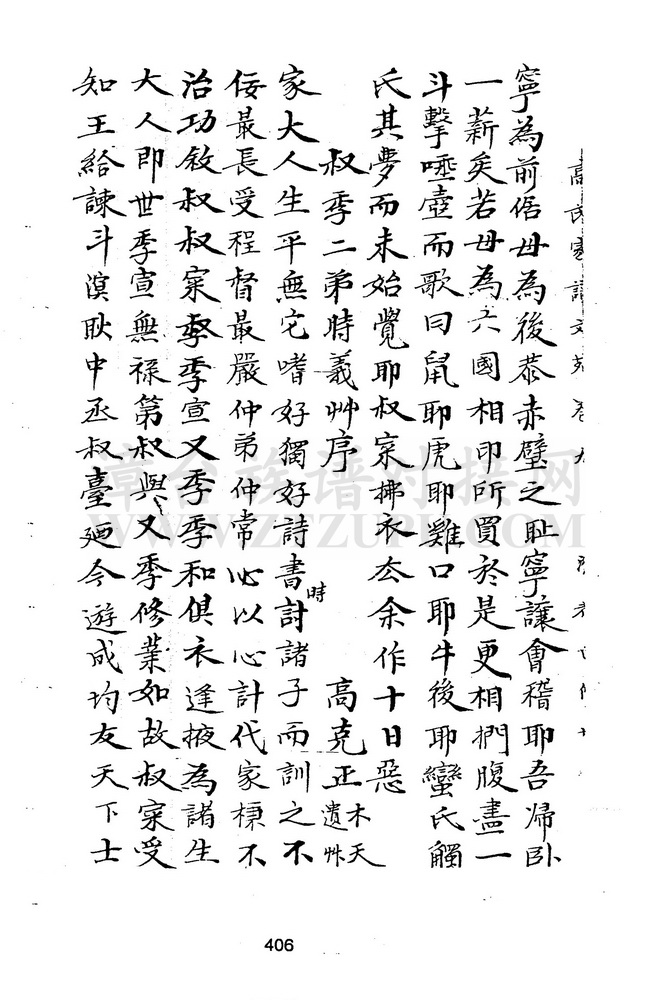 寧為前倨毋為後恭赤壁之恥寧讓會稽耶吾歸卧
一薪矣若毋為六國相印所買於是更相捫腹盡一
斗擊唾壺而歌曰鼠耶虎耶雞口耶牛後耶蠻氏觸
氏其夢而未始覺耶叔寀拂衣去余作十日惡
叔季二弟時義艸序
高克正木天遺艸
家大人生平無它嗜好獨好詩書時討諸子而訓之不
佞最長受程督最嚴仲弟仲常心以心計代家稟不
治功敘叔叔寀季季宣又季季和俱衣逢掖為諸生
大人即世季宣無祿第叔與又季修業如故叔寀受
知王給諫斗溟耿中丞叔臺廼今遊成均友天下士
406
章台族谱对接网
WWW.ZTZUPU.COM